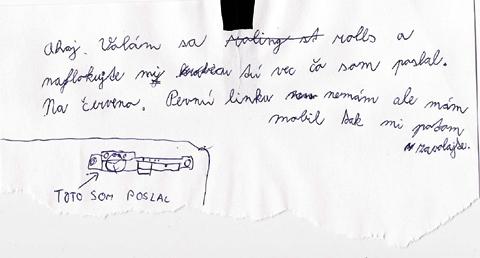 Ahoj. Volám sa rolls a
naflokujte mi tú vec čo som poslal.
Na červeno. Pevnú linku nemám ale mám
mobil tak mi potom
zavolajte.
TOTO SOM POSLAL